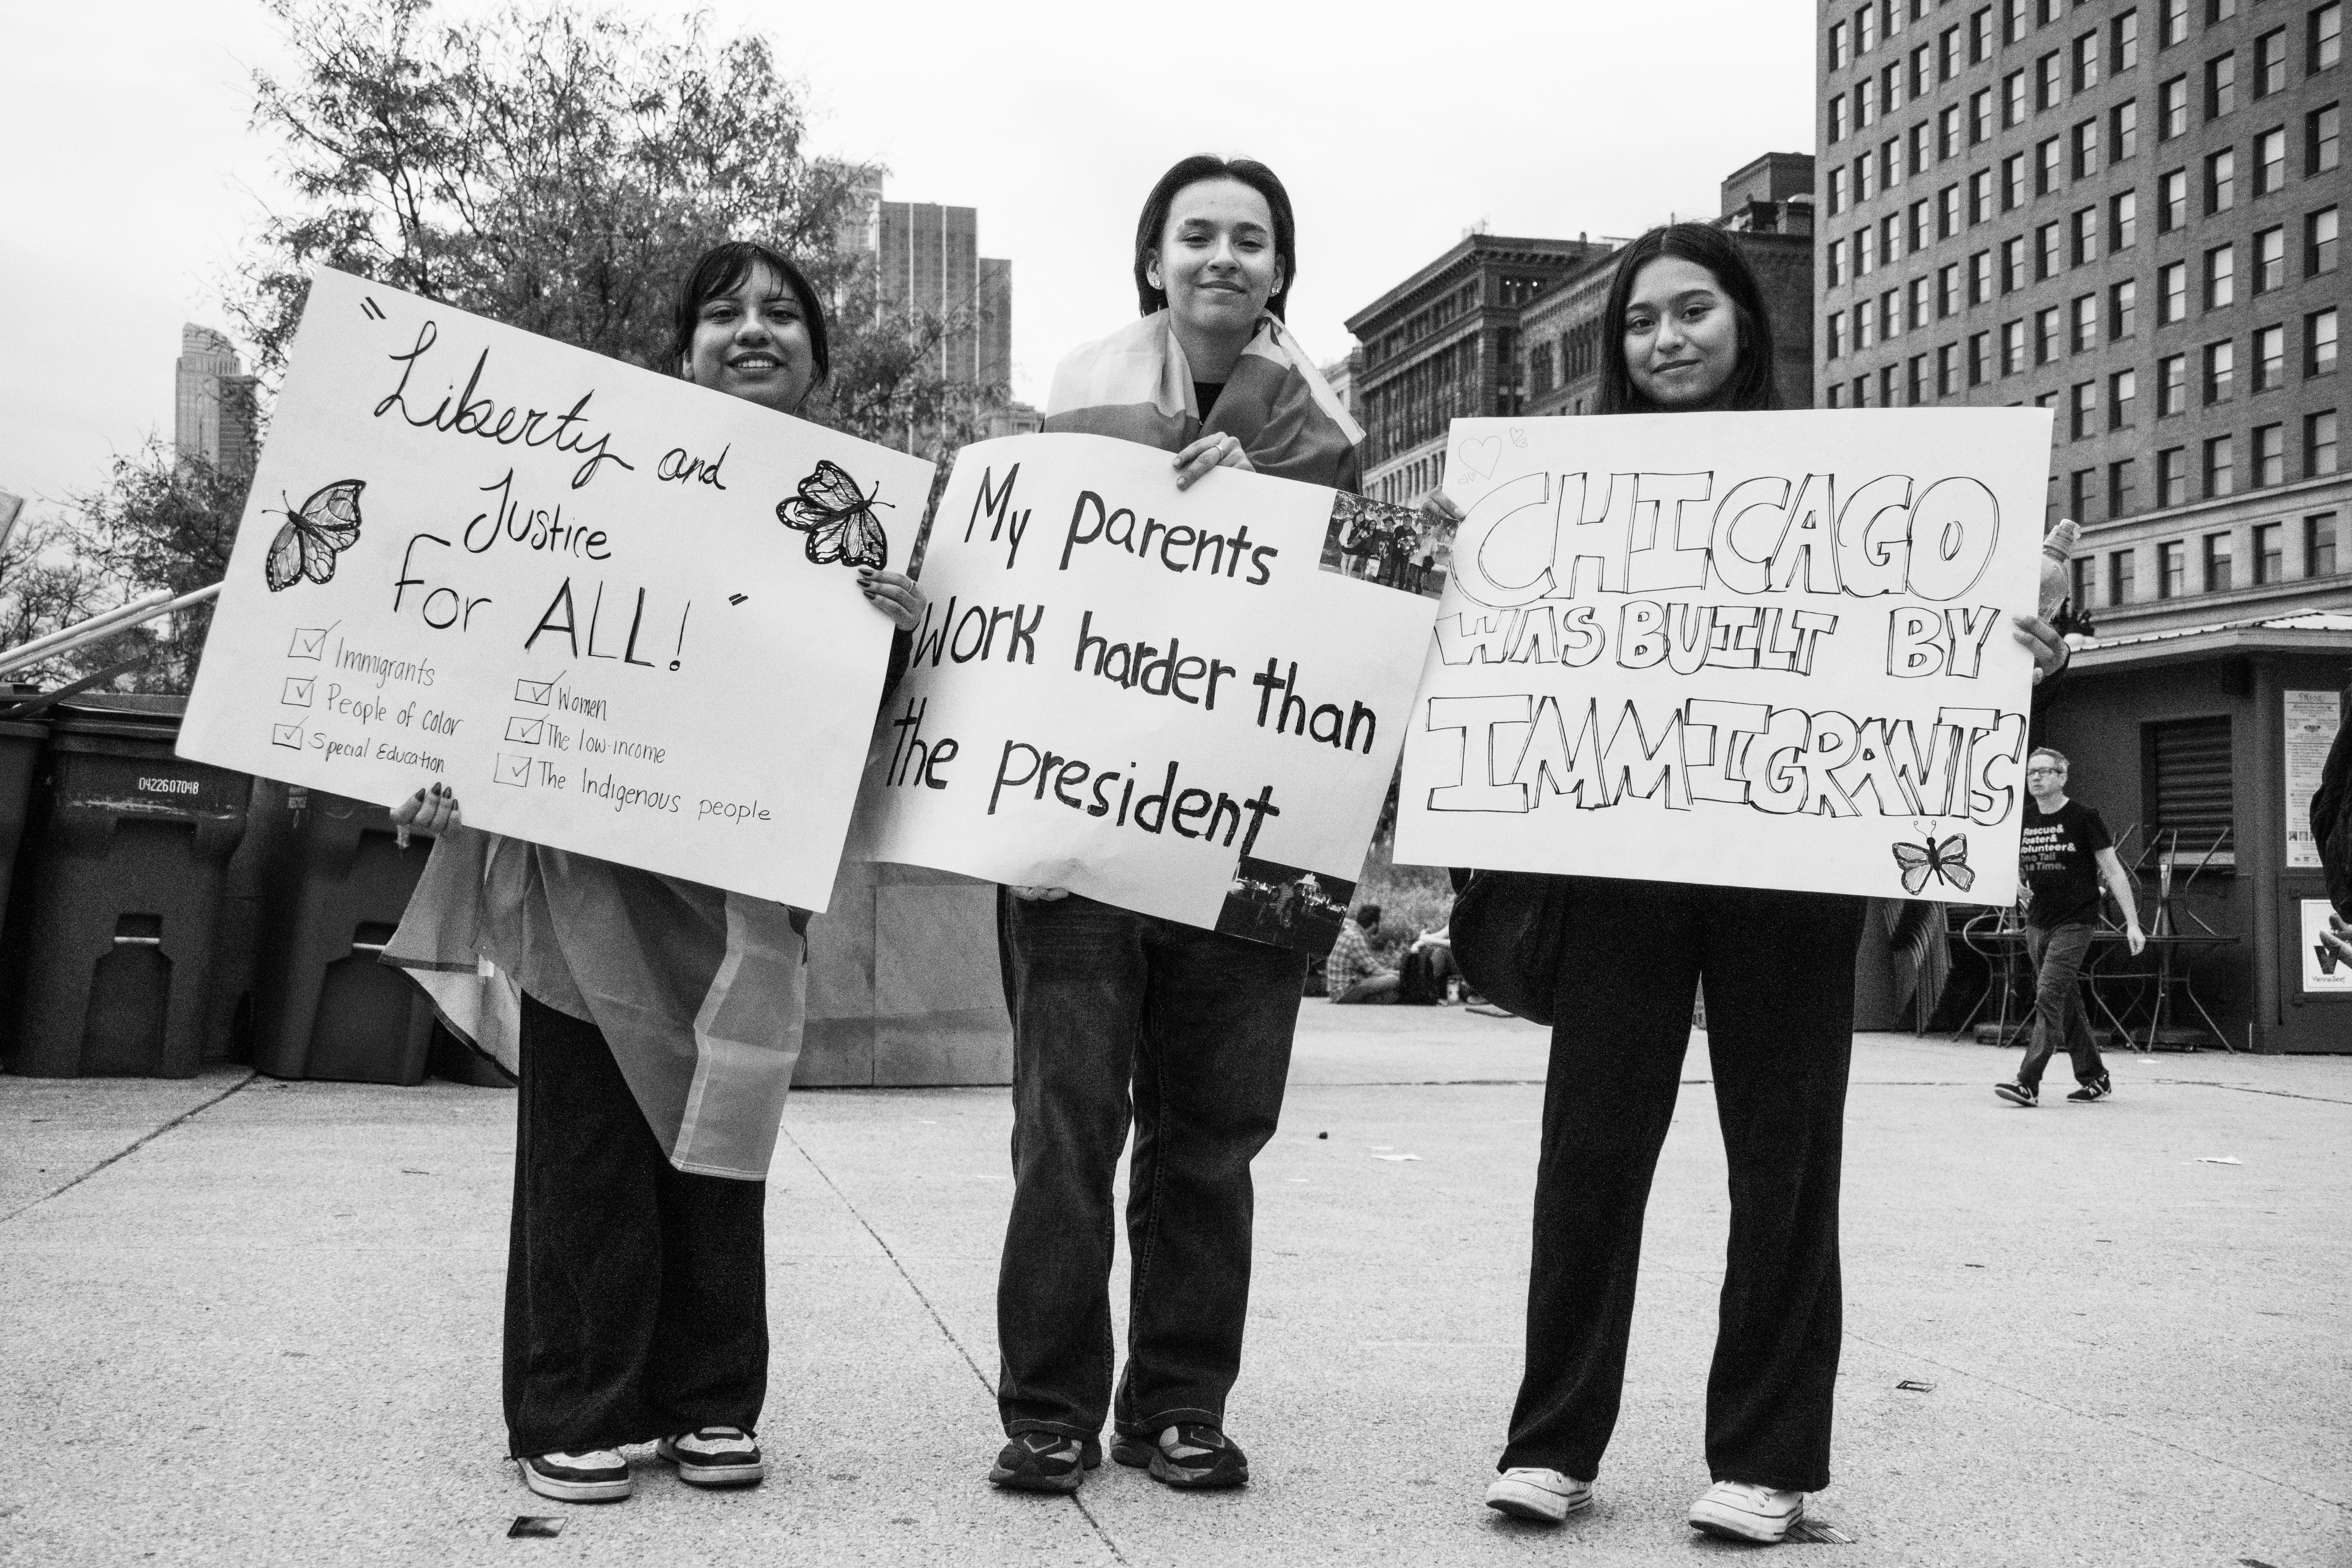 "Liberty and
Justice
For ALL!"
Immigrants
People of color
Special Education
Women
The low-income
The Indigenous people
My parents
work harder than
the president
CHICAGO
WAS BUILT BY
IMMIGRANTS
0422607048
Rescue&
Foster&
Volunteer&
One Tail
at a Time.